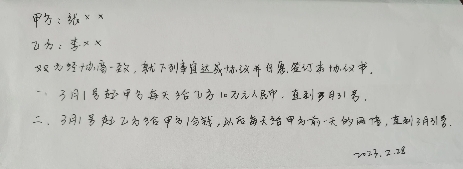 甲方：张××
乙方：李××
双方经协商一致，就下列事宜达成协议并自愿签订本协议书。
一、3月1号起甲方每天给乙方10万元人民币，直到3月31号。
二、3月1号起乙方给甲方1分钱，以后每天给甲方前一天的两倍，直到3月31号。
2023.2.28